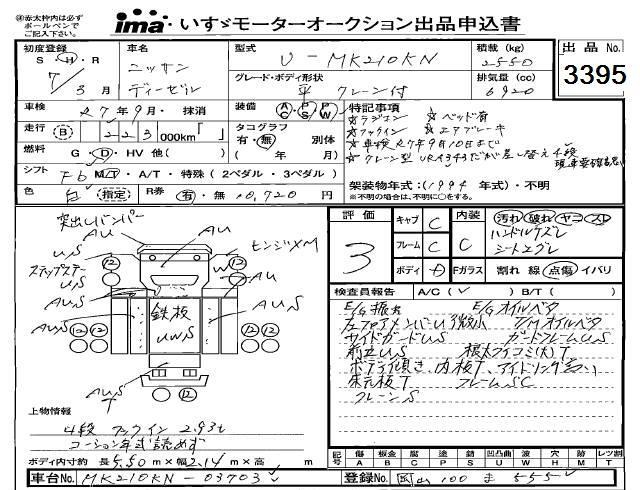 ※赤太枠内は必ず
ボールペンで
ご記入下さい。
ima いすゞモーターオークション出品申込書
初度登録 S H・R 7/3月
車名 ニッサン ディーゼル
型式 U-MK210KN
積載 (kg) 2550
出品 No. 3395
グレード・ボディ形状 平 クレーン付
排気量 (cc) 6920
車検 R7年9月・抹消
装備 AC PS AB PW
特記事項
☆ラジコン ☆ベッド有
☆フックイン ☆エアブレーキ
☆車検R7年9月10日まで
☆クレーン型 URA343だが差し替え4段
現車要確認
走行 B 223 000km「 」
タコグラフ 有・無 別体 ( 年 月)
燃料 G・D・HV 他( )
シフト F6 MT・A/T・特殊 (2ペダル・3ペダル)
架装物年式:(1994 年式)・不明
※不明の場合は、不明に○をする。
色 白 (指定) R券 有・無 10,720 円
突出しバンパー
AU
US
ステップステー
US
センジXM
AU
12 12
W
AUS
鉄板
UWS
AUS
12 12 12 12
AUS
T
AUS
評価 3
キャブ C
フレーム C
ボディ D
内装 C
Fガラス
汚れ 破れ ヤニ スレ
ハンドルスレ
シートエグレ
割れ 線 点傷 イバリ
検査員報告 A/C( ✓ ) B/T( )
E/G振出 E/Gオイルベタ
左ドアメンバーU微小 T/Mオイルベタ
サイドガードUS ガードフレームUS
前立US 根太フィコミ(大)T
ボディ傾き、内板T、アイドリング高い)
床元板T フレームSC
クレーンS
上物情報
4段 フックイン 2.93t
コーション年式読めず
ボディ内寸約 長5.50m×幅2.14m×高 m
記号 傷 A 板金 B 腐 C 塗 P 錆 S 凹凸曲 U 波 W 穴 H 跡 M レツ割 T
車台No. MK210KN-03703
登録No. 岡山 100 ま 555